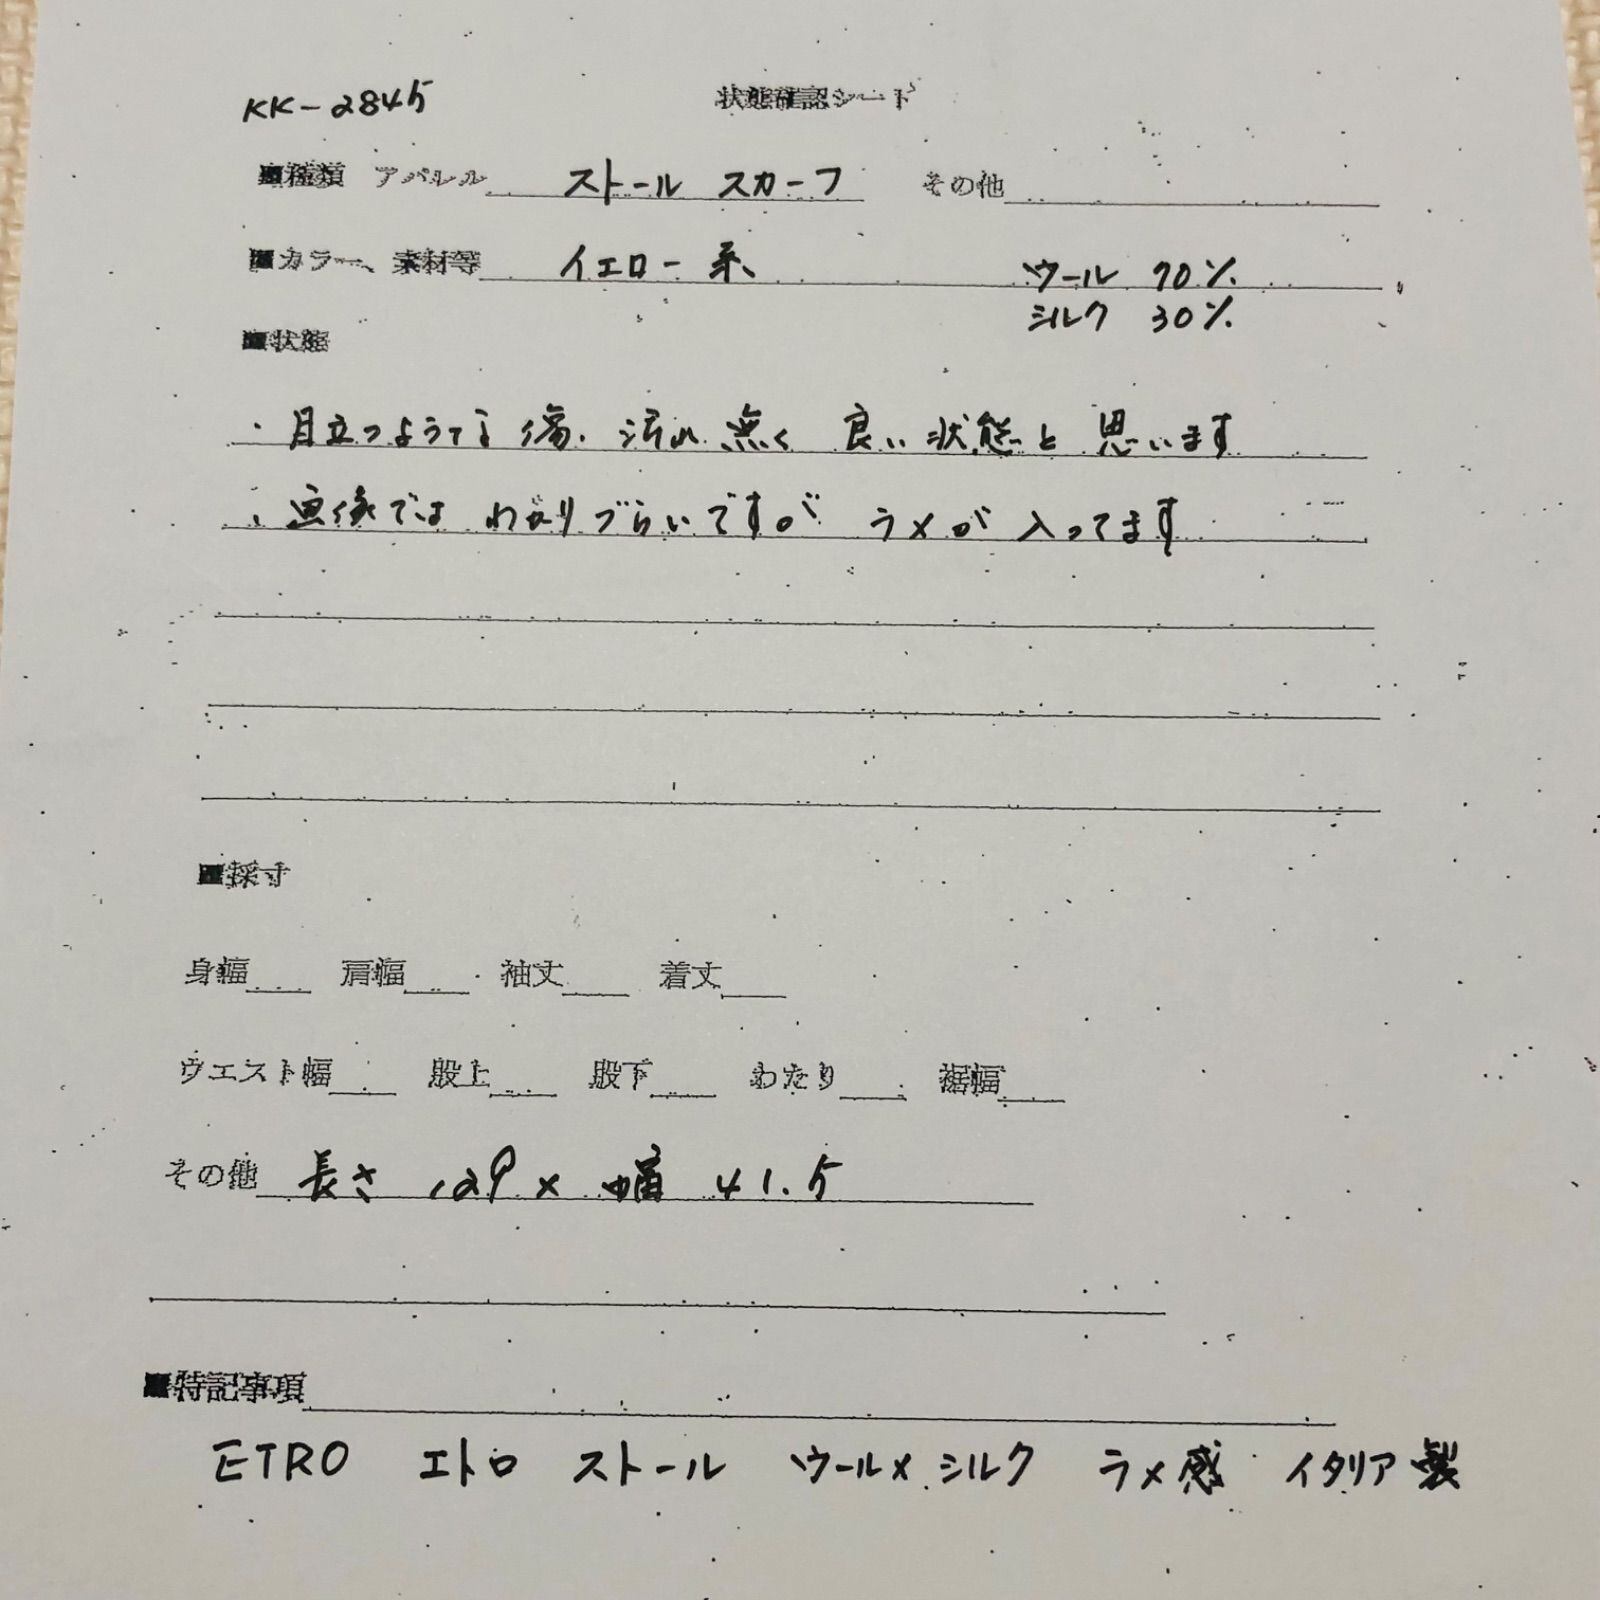 KK-2845 状態確認シート
■種類 アパレル ストール スカーフ その他
■カラー、素材等 イエロー系 ウール 70%
シルク 30%
■状態
・目立つような傷、汚れ無く 良い状態と思います
・画像では わかりづらいですが ラメが入ってます
■採寸
身幅 肩幅 袖丈 着丈
ウエスト幅 股上 股下 わたり 裾幅
その他 長さ 129 × 幅 41.5
■特記事項
ETRO エトロ ストール ウール×シルク ラメ感 イタリア製